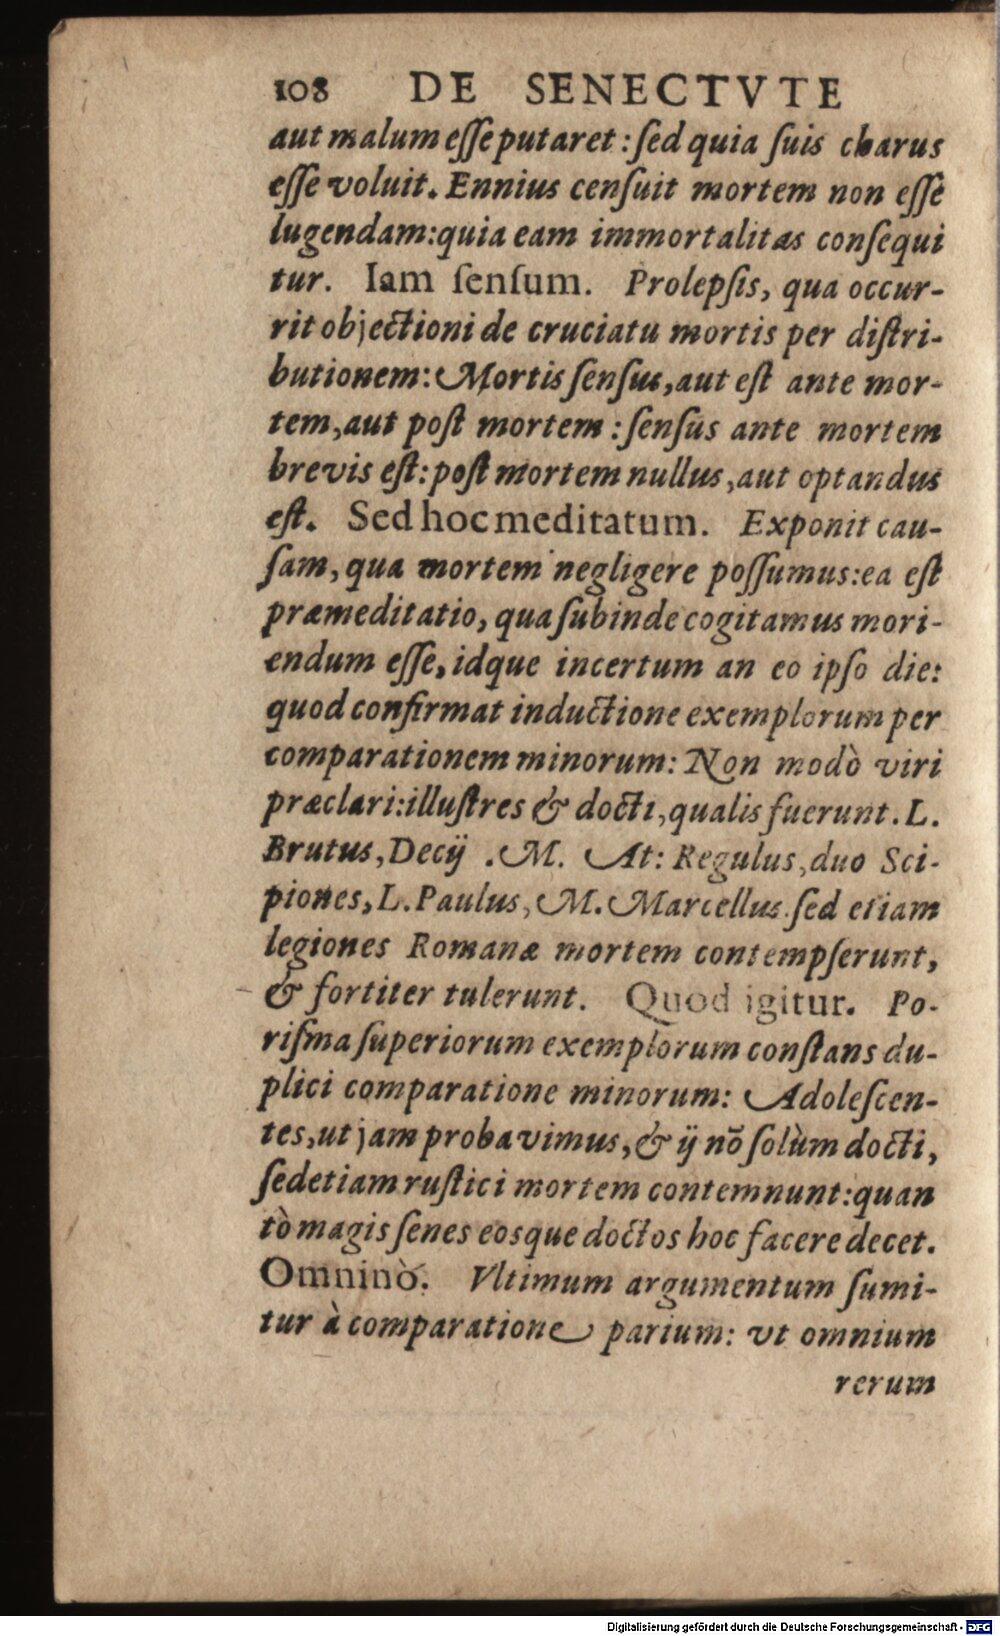 108 DE SENECTVTE
aut malum eſſe putaret: ſed quia ſuis charus
eſſe voluit. Ennius cenſuit mortem non eſſe
lugendam: quia eam immortalitas conſequi
tur. Iam ſenſum. Prolepſis, qua occur-
rit objectioni de cruciatu mortis per diſtri-
butionem: Mortis ſenſus, aut eſt ante mor-
tem, aut poſt mortem: ſenſus ante mortem
brevis eſt: poſt mortem nullus, aut optandus
eſt. Sed hoc meditatum. Exponit cau-
ſam, qua mortem negligere poſſumus: ea eſt
præmeditatio, qua ſubinde cogitamus mori-
endum eſſe, idque incertum an eo ipſo die:
quod confirmat inductione exemplorum per
comparationem minorum: Non modò viri
præclari: illuſtres & docti, qualis fuerunt. L.
Brutus, Decij . M. At: Regulus, duo Sci-
piones, L. Paulus, M. Marcellus. ſed etiam
legiones Romanæ mortem contempſerunt,
& fortiter tulerunt. Quod igitur. Po-
riſma ſuperiorum exemplorum conſtans du-
plici comparatione minorum: Adoleſcen-
tes, ut jam probavimus, & ij nõ ſolùm docti,
ſed etiam ruſtici mortem contemnunt: quan
tò magis ſenes eosque doctos hoc facere decet.
Omninò. Vltimum argumentum ſumi-
tur à comparatione parium: vt omnium
rerum
Digitalisierung gefördert durch die Deutsche Forschungsgemeinschaft - DFG